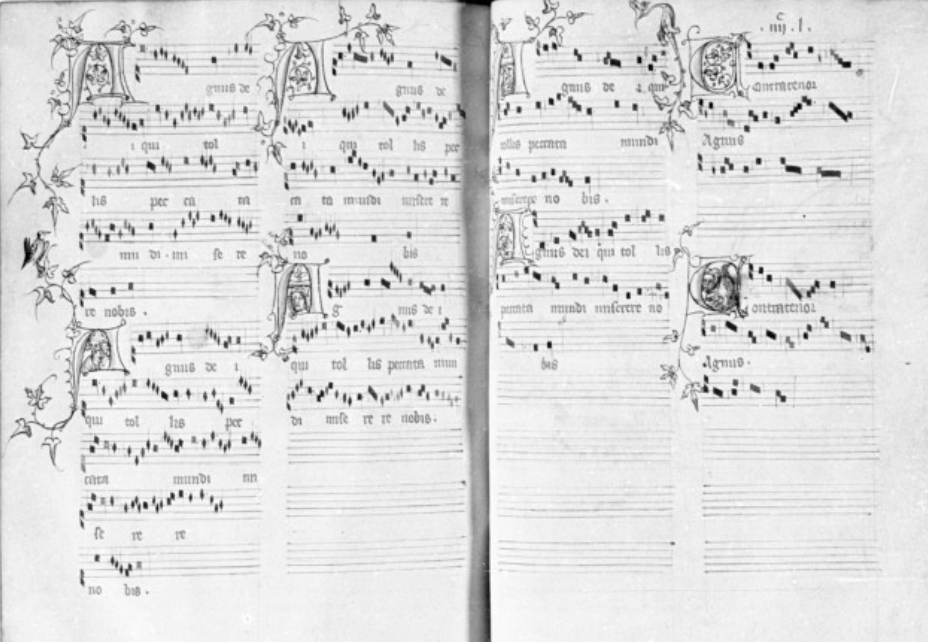 gnus de
i qui tol
lis pec ca ta
mu di mi se re
re nobis .
gnus de i
qui tol lis pec
cata mundi mi
se re re
no bis .
gnus de
i qui tol lis pec
ca ta mundi misere re
no bis
g nus de i
qui tol lis peccata mun
di mise re re nobis .
gnus de i qui
tollis peccata mundi
miserere no bis .
gnus dei qui tol lis
peccata mundi miserere no
bis
.iiij.l.
ontratenor
Agnus
ontratenor
Agnus .